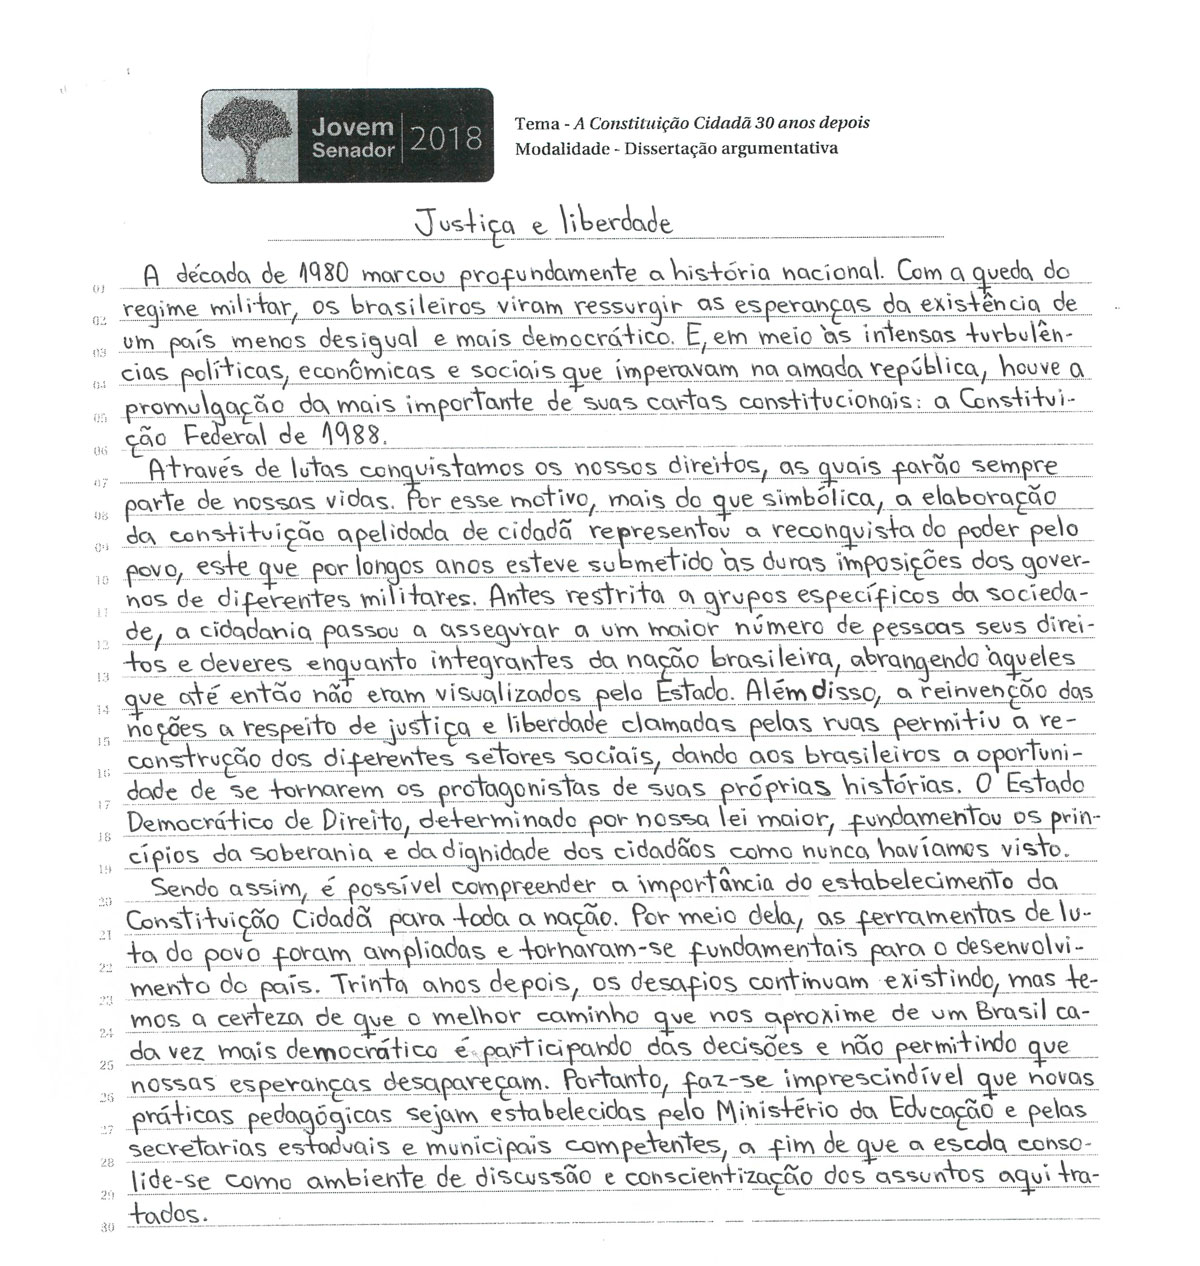 Jovem Senador 2018
Tema - A Constituição Cidadã 30 anos depois
Modalidade - Dissertação argumentativa
Justiça e liberdade
01 A década de 1980 marcou profundamente a história nacional. Com a queda do
02 regime militar, os brasileiros viram ressurgir as esperanças da existência de
03 um país menos desigual e mais democrático. E, em meio às intensas turbulên-
04 cias políticas, econômicas e sociais que imperavam na amada república, houve a
05 promulgação da mais importante de suas cartas constitucionais: a Constitui-
06 ção Federal de 1988.
07 Através de lutas conquistamos os nossos direitos, as quais farão sempre
08 parte de nossas vidas. Por esse motivo, mais do que simbólica, a elaboração
09 da constituição apelidada de cidadã representou a reconquista do poder pelo
10 povo, este que por longos anos esteve submetido às duras imposições dos gover-
11 nos de diferentes militares. Antes restrita a grupos específicos da socieda-
12 de, a cidadania passou a assegurar a um maior número de pessoas seus direi-
13 tos e deveres enquanto integrantes da nação brasileira, abrangendo àqueles
14 que até então não eram visualizados pelo Estado. Além disso, a reinvenção das
15 noções a respeito de justiça e liberdade clamadas pelas ruas permitiu a re-
16 construção dos diferentes setores sociais, dando aos brasileiros a oportuni-
17 dade de se tornarem os protagonistas de suas próprias histórias. O Estado
18 Democrático de Direito, determinado por nossa lei maior, fundamentou os prin-
19 cípios da soberania e da dignidade dos cidadãos como nunca havíamos visto.
20 Sendo assim, é possível compreender a importância do estabelecimento da
21 Constituição Cidadã para toda a nação. Por meio dela, as ferramentas de lu-
22 ta do povo foram ampliadas e tornaram-se fundamentais para o desenvolvi-
23 mento do país. Trinta anos depois, os desafios continuam existindo, mas te-
24 mos a certeza de que o melhor caminho que nos aproxime de um Brasil ca-
25 da vez mais democrático é participando das decisões e não permitindo que
26 nossas esperanças desapareçam. Portanto, faz-se imprescindível que novas
27 práticas pedagógicas sejam estabelecidas pelo Ministério da Educação e pelas
28 secretarias estaduais e municipais competentes, a fim de que a escola conso-
29 lide-se como ambiente de discussão e conscientização dos assuntos aqui tra-
30 tados.